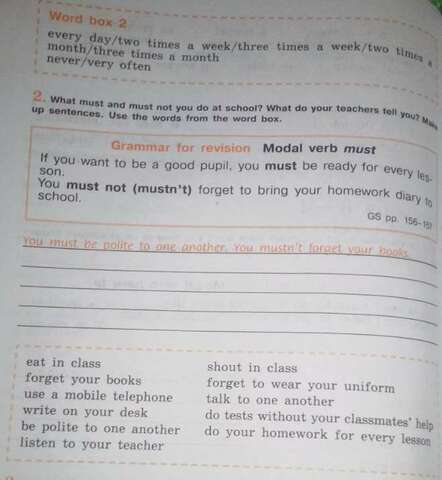 Word box 2
every day/two times a week/three times a week/two times a
month/three times a month
never/very often
2. What must and must not you do at school? What do your teachers tell you? Make
up sentences. Use the words from the word box.
Grammar for revision Modal verb must
If you want to be a good pupil, you must be ready for every les-
son.
You must not (mustn't) forget to bring your homework diary to
school.
GS pp. 156-157
You must be polite to one another. You mustn't forget your books.
eat in class
forget your books
use a mobile telephone
write on your desk
be polite to one another
listen to your teacher
shout in class
forget to wear your uniform
talk to one another
do tests without your classmates' help
do your homework for every lesson